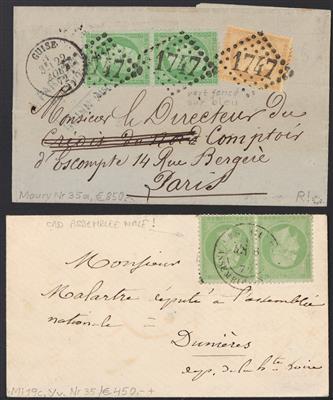 GUISE
22
AOUT
72
1747 1747 1747
vert foncé
sur bleu
Monsieur le Directeur du
Crédit du Nord Comptoir
d'Escompte 14 Rue Bergère
Paris
Maury Nr 35a, €850.-
R!
CAD ASSEMBLEE NATLE!
Monsieur
Malartre député à l'assemblée
nationale =
Dunières
dep. de la hte Loire
Mi 19c, Yv. Nr 35/€450.-+